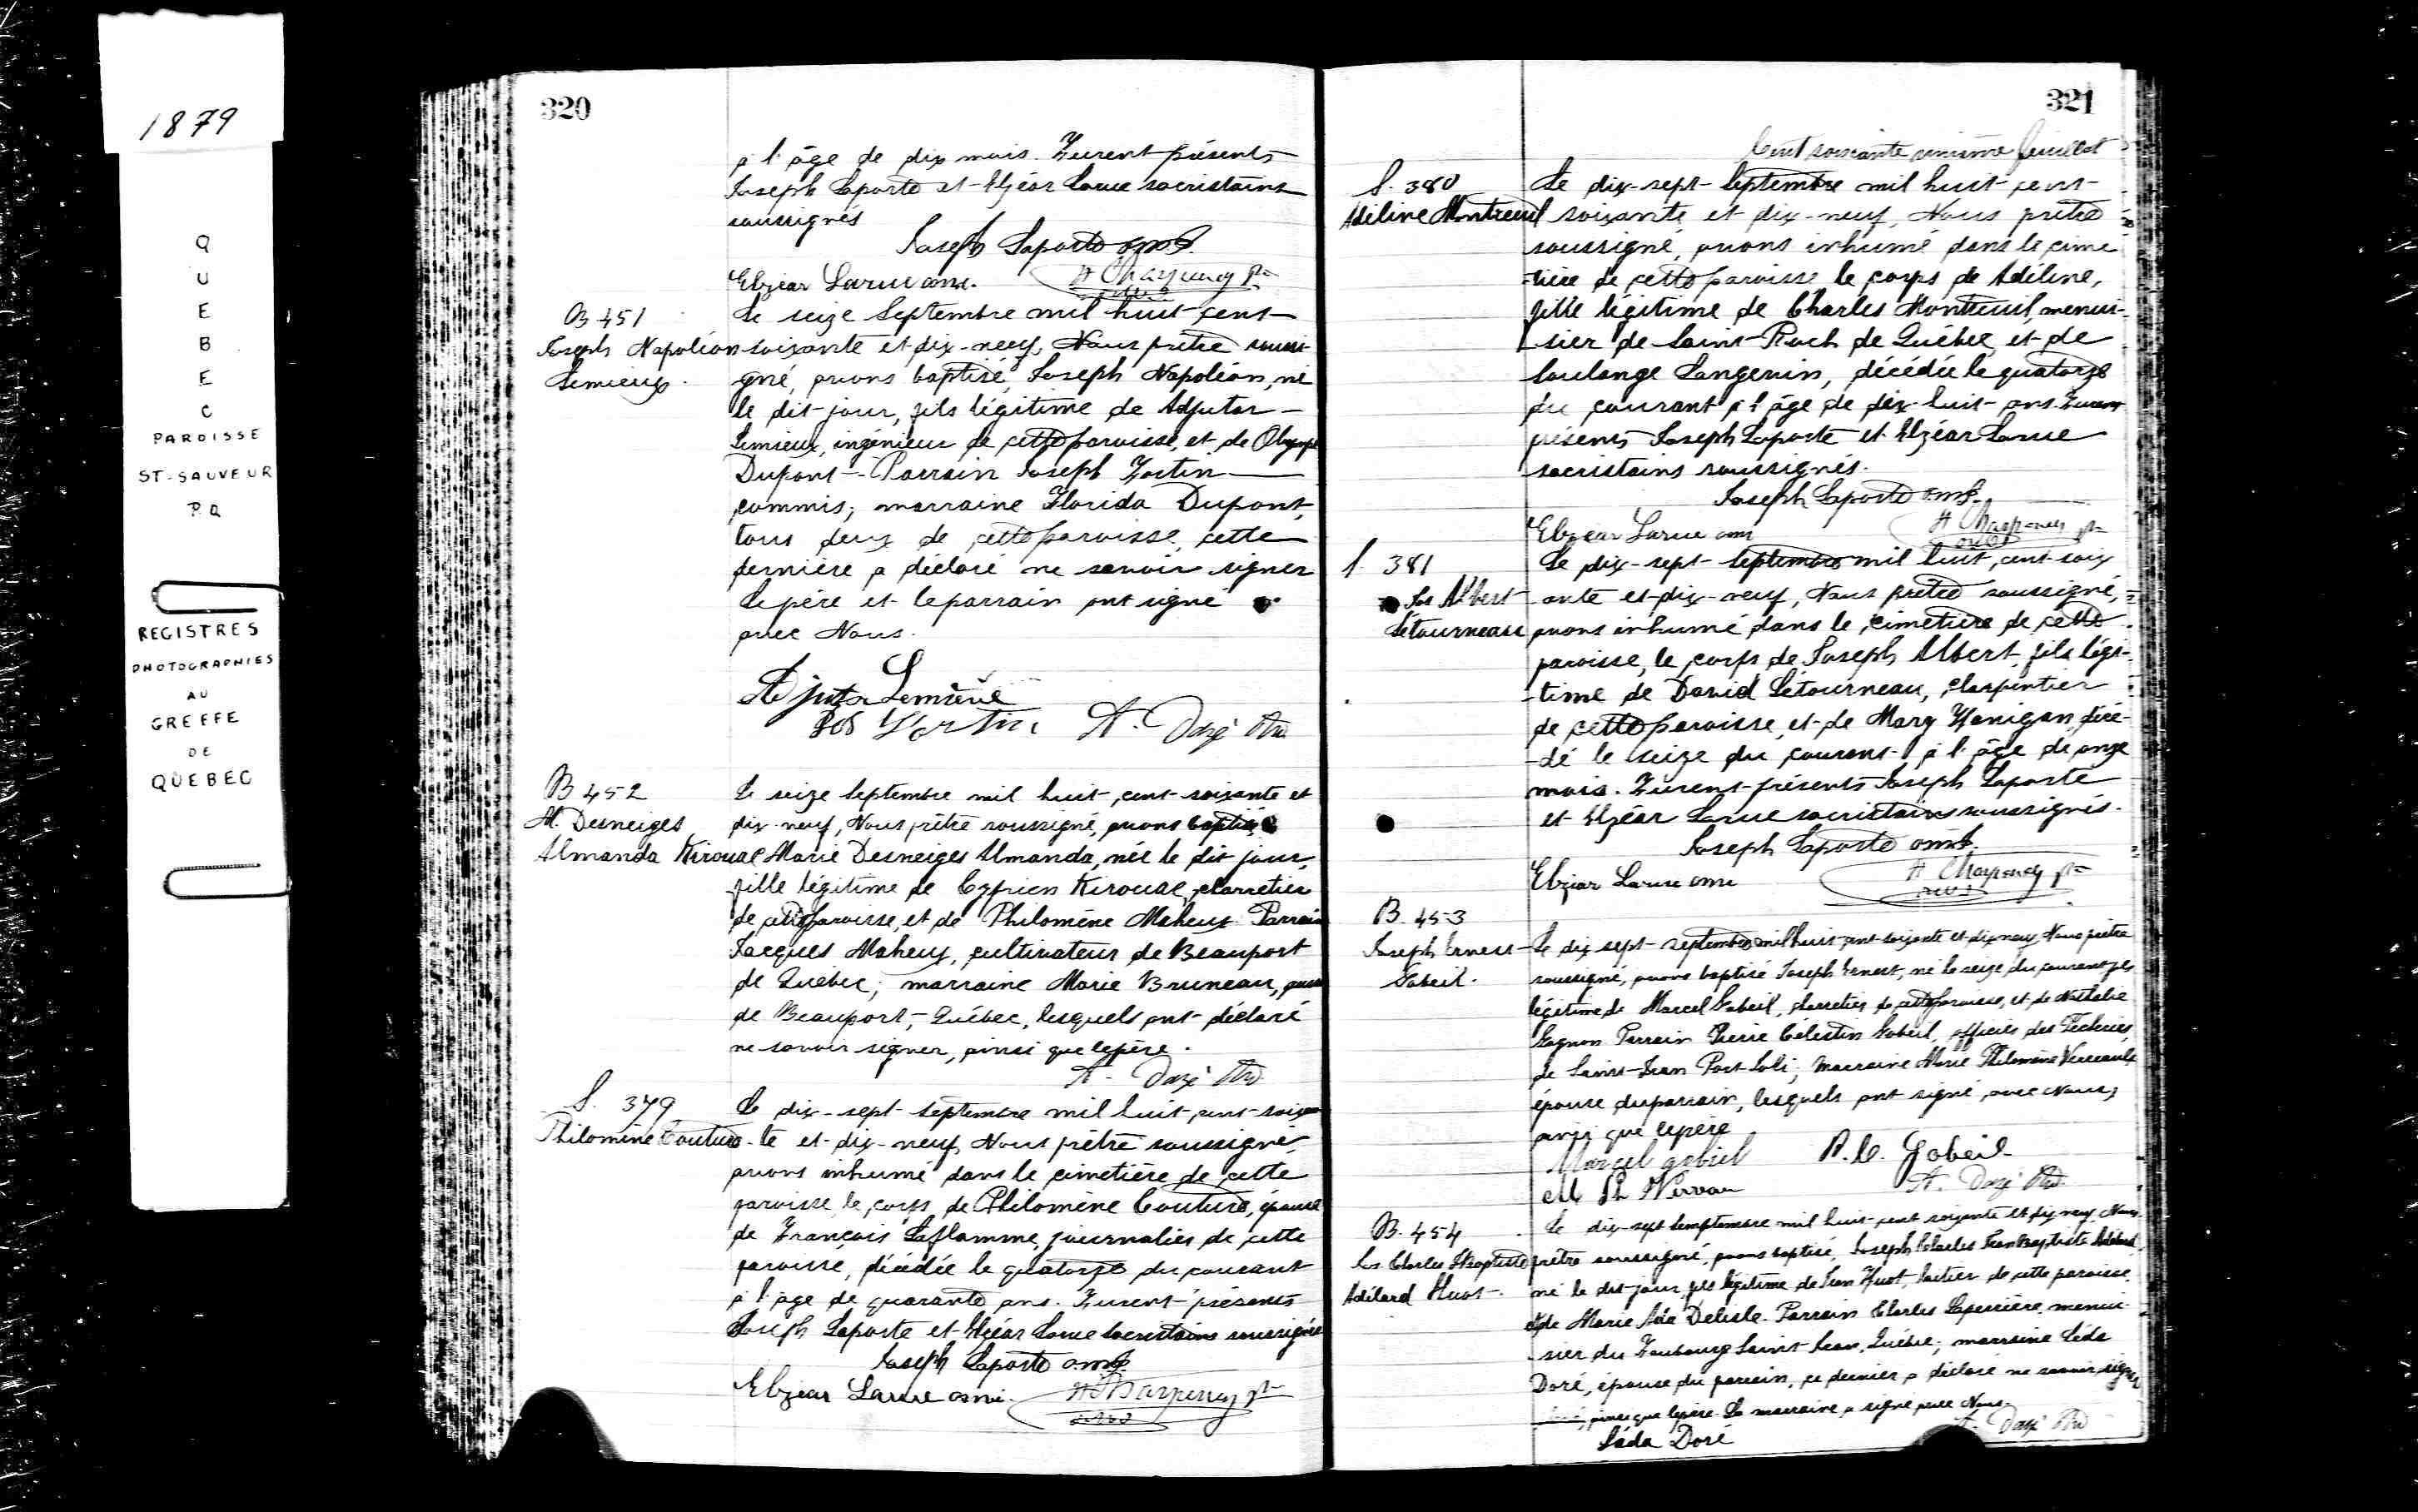 1879
QUEBEC
PAROISSE
ST-SAUVEUR
P.Q
REGISTRES
PHOTOGRAPHIES
AU
GREFFE
DE
QUEBEC
320
à l'âge de dix mois. Furent présents
Joseph Laporte et Elzéar Larue sacristains
soussignés
Joseph Laporte
Elzear Larue
B 451
Joseph Napoléon
Lemieux.
Le seize Septembre mil huit cent
soixante et dix-neuf, Nous prêtre soussi-
gné, avons baptisé, Joseph Napoléon, né
le dit jour, fils légitime de Adjutor
Lemieux, ingénieur de cette paroisse, et de Olympe
Dupont - Parrain Joseph Fortin
commis; marraine Florida Dupont,
tous deux de cette paroisse, cette
dernière a déclaré ne savoir signer
Le père et le parrain ont signé
avec Nous.
Adjutor Lemieux
Jos Fortin A. Dazé Ptre
B 452
M. Desneiges
Almanda Kirouac
Le seize Septembre mil huit cent soixante et
dix-neuf, Nous prêtre soussigné, avons baptisé
Marie Desneiges Almanda, née le dit jour,
fille légitime de Cyprien Kirouac, charretier
de cette paroisse, et de Philomène Maheux Parrain
Jacques Maheux, cultivateur de Beauport
de Quebec; marraine Marie Bruneau, aussi
de Beauport, Québec, lesquels ont déclaré
ne savoir signer, ainsi que le père.
A. Dazé Ptre
S. 379
Philomène Couture
Le dix-sept Septembre mil huit cent soixan
te et dix-neuf, Nous prêtre soussigné,
avons inhumé dans le cimetière de cette
paroisse, le corps de Philomène Couture, épouse
de François Laflamme, journalier de cette
paroisse, décédée le quatorze du courant
à l'âge de quarante ans. Furent présents
Joseph Laporte et Elzéar Larue Sacristains soussignés
Joseph Laporte
Elzear Larue
321
Cent soixante unième feuillet
S. 380
Adéline Montreuil
Le dix-sept Septembre mil huit cent
soixante et dix-neuf, Nous prêtre
soussigné, avons inhumé dans le cime
-tière de cette paroisse, le corps de Adéline,
fille légitime de Charles Montreuil, menui-
sier de Saint-Roch de Québec, et de
Soulange Langevin, décédée le quatorze
du courant à l'âge de dix-huit ans. Furent
présents Joseph Laporte et Elzéar Larue
sacristains soussignés.
Joseph Laporte
Elzear Larue
S. 381
Jos Albert
Létourneau
Le dix-sept Septembre mil huit cent soix
ante et dix-neuf, Nous prêtre soussigné,
avons inhumé dans le cimetière de cette
paroisse, le corps de Joseph Albert, fils légi-
-time de David Létourneau, charpentier
de cette paroisse, et de Mary Hanigan, décé-
-dé le seize du courant à l'âge de onze
mois. Furent présents Joseph Laporte
et Elzéar Larue sacristains soussignés.
Joseph Laporte
Elzear Larue
B. 453
Joseph Ernest
Gobeil.
Le dix sept septembre mil huit cent soixante et dix neuf, Nous prêtre
soussigné, avons baptisé Joseph Ernest, né le seize du courant fils
légitime de Marcel Gobeil, charretier de cette paroisse, et de Nathalie
Gagnon Parrain Pierre Celestin Gobeil, officier des Pêcheries,
de Saint-Jean Port Joli; marraine Marie Philomène Verreault
épouse du parrain, lesquels ont signé avec Nous,
ainsi que le père
Marcel gobiel P. C. Gobeil
A. Dazé Ptre
B. 454
Jos Charles J Baptiste
Adélard Huot
Le dix-sept Semptembre mil huit cent soixante et dix neuf, Nous
prêtre soussigné, avons baptisé, Joseph Charles Jean Baptiste Adélard,
né le dit jour, fils légitime de Jean Huot, laitier de cette paroisse,
et de Marie Ada Delisle. Parrain Charles Laperrière, menui-
sier du Faubourg Saint-Jean, Québec; marraine Léda
Doré, épouse du parrain, ce dernier a déclaré ne savoir signer
ainsi que le père. La marraine a signé avec Nous.
A. Dazé Ptre
Léda Doré